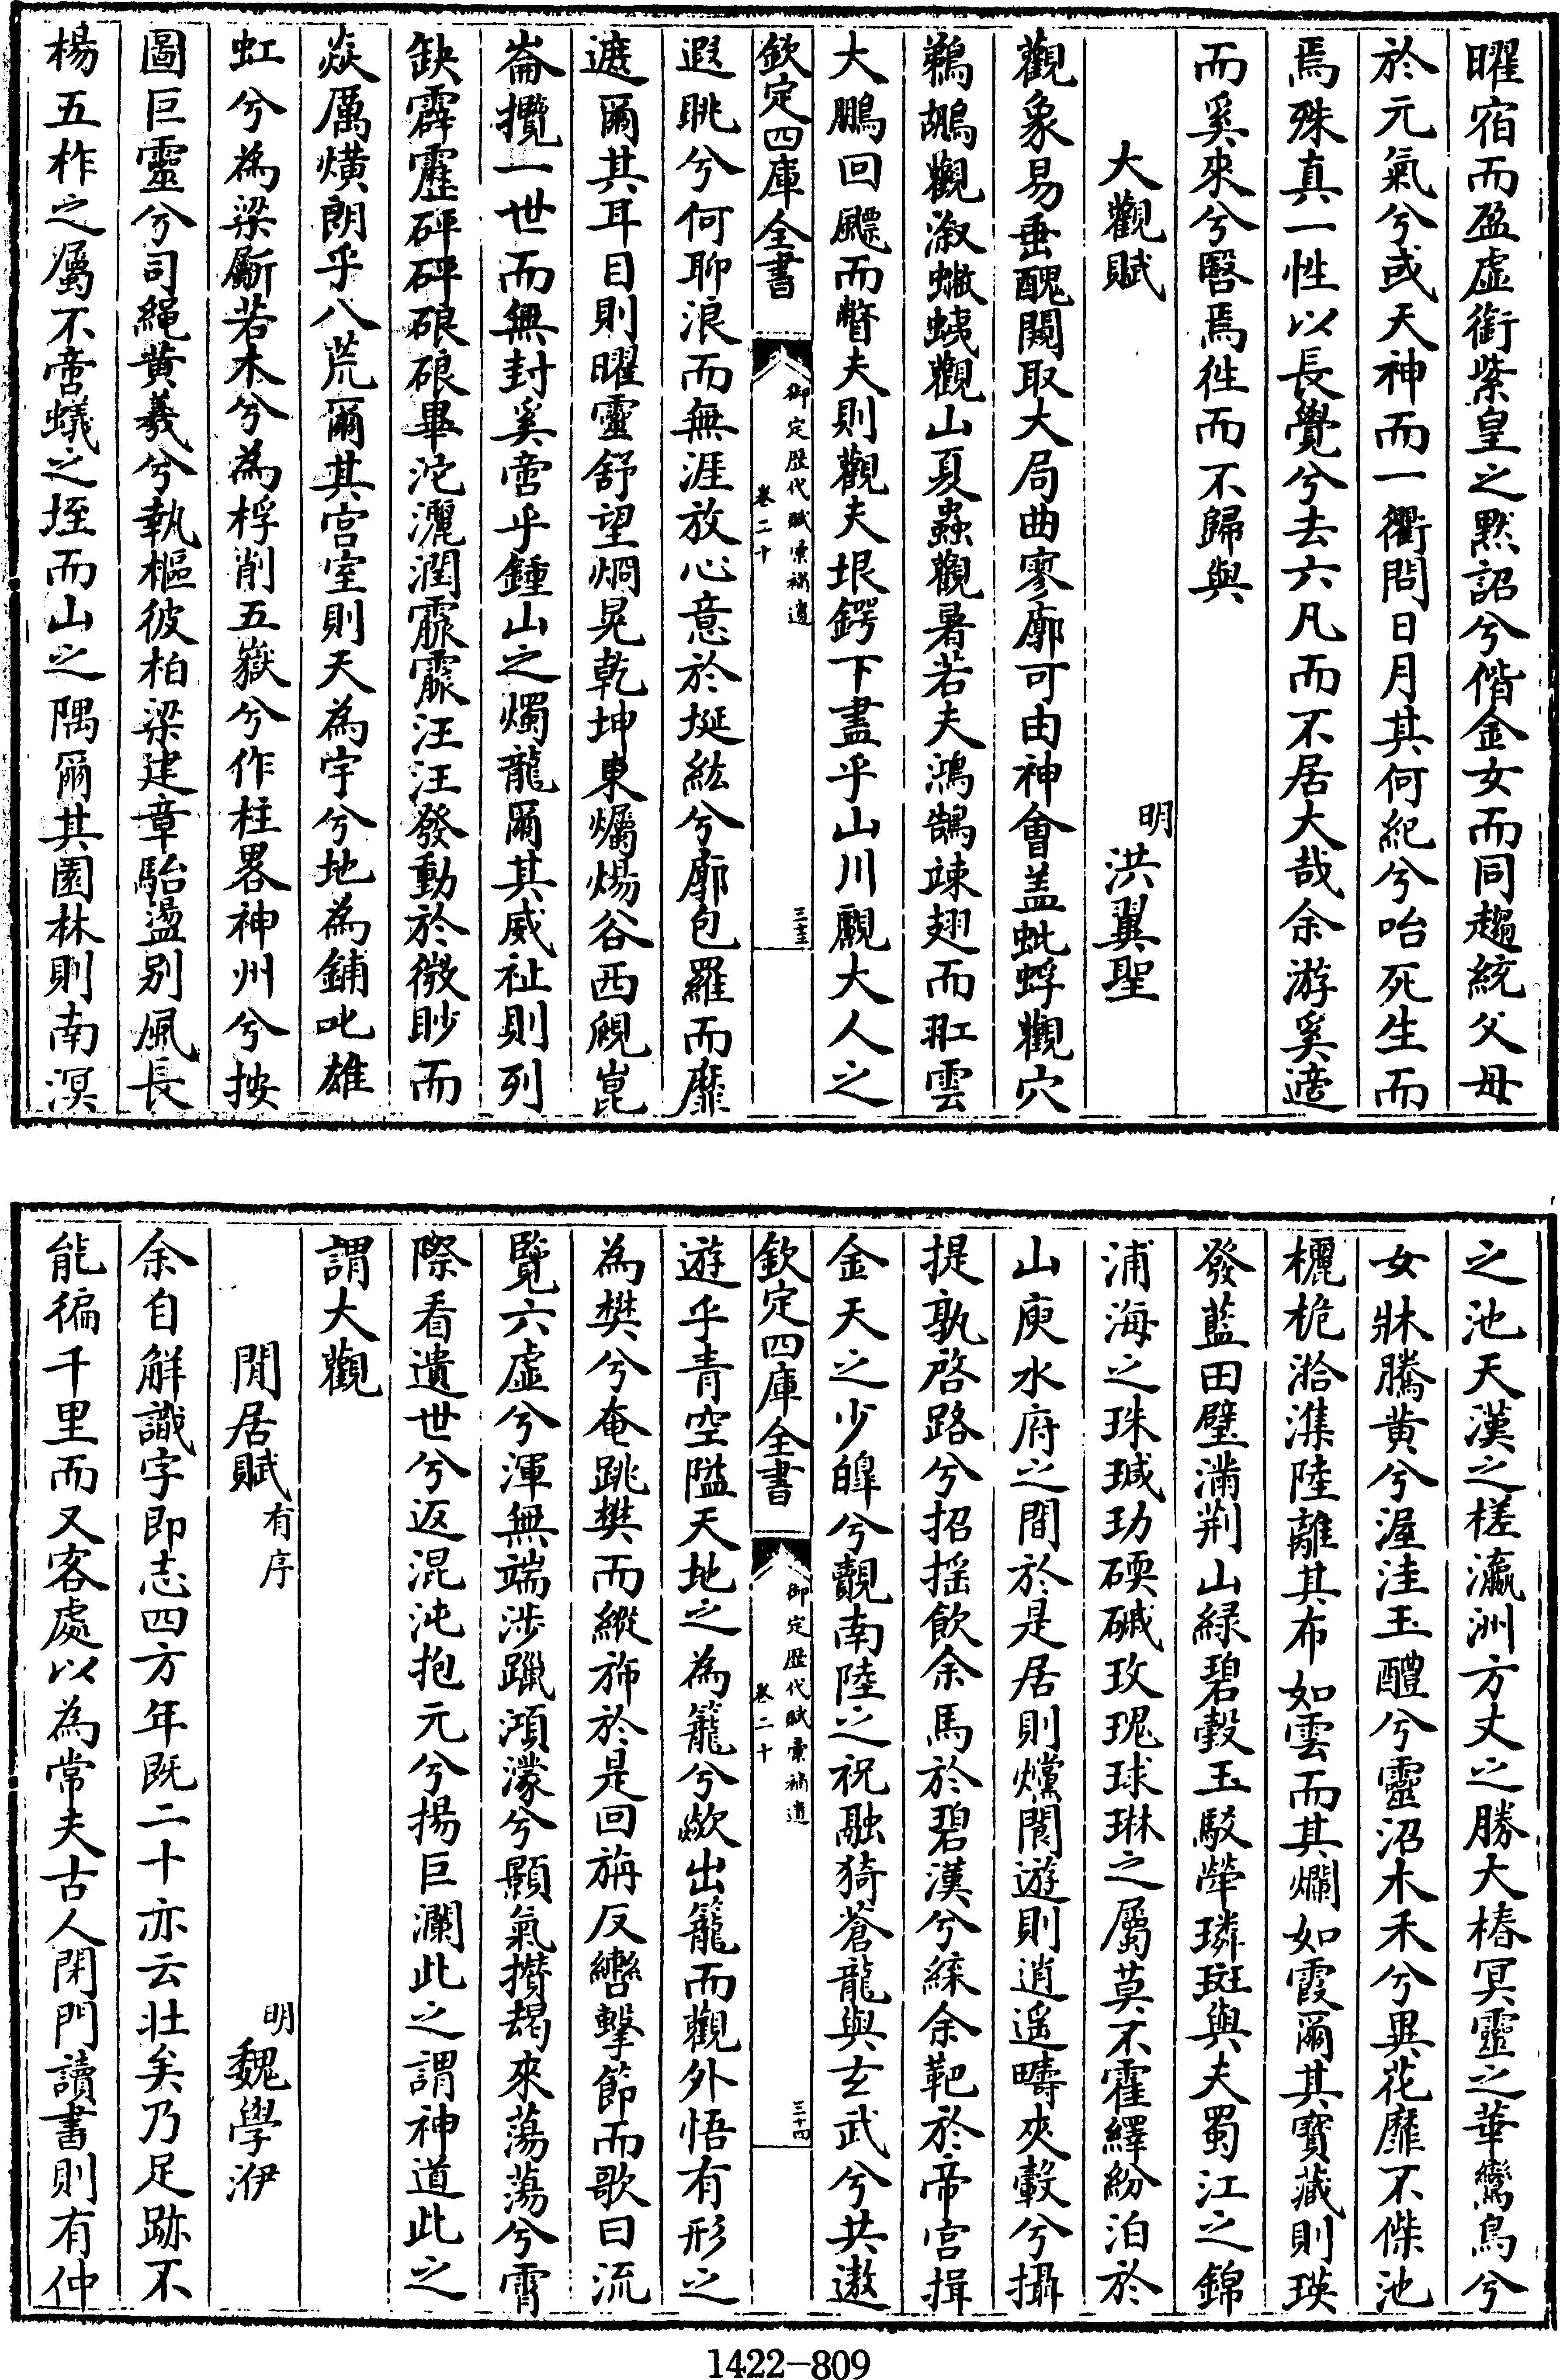 曜宿而盈虚銜紫皇之黙詔兮偕金女而同趨統父母
於元氣兮或天神而一衢問日月其何紀兮咍死生而
焉殊真一性以長覺兮去六凡而不居大哉余游奚適
而奚來兮嘻焉徃而不歸與
大觀賦
明 洪翼聖
觀象易垂醜闚取大局曲寥廓可由神會盖蚍蜉觀穴
鵜鶘觀溆蠛蛦觀山夏蟲觀暑若夫鴻鵠竦翅而羾雲
大鵬回飈而瞥夫則觀夫垠鍔下盡乎山川覼大人之
欽定四庫全書
御定歴代賦彚補遺
卷二十
三十三
遐眺兮何聊浪而無涯放心意於埏紘兮廓包羅而靡
遮爾其耳目則曜靈舒望烱晃乾坤東爥煬谷西覜崑
崙攬一世而無封奚啻乎鍾山之燭龍爾其威祉則列
缺霹靂砰砰硠硠畢沱灑潤霢霢汪汪發動於微眇而
焱厲熿朗乎八荒爾其宫室則天為宇兮地為鋪叱雄
虹兮為梁斸若木兮為桴削五嶽兮作柱畧神州兮按
圖巨靈兮司繩黄羲兮執樞彼柏梁建章駘盪别風長
楊五柞之屬不啻蟻之垤而山之隅爾其園林則南溟
之池天漢之槎瀛洲方丈之勝大椿冥靈之華鸞鳥兮
女牀騰黄兮渥洼玉醴兮靈沼木禾兮異花靡不傑池
欐桅洽潗陸離其布如雲而其爛如霞爾其寶藏則瑛
發藍田璧滿荆山緑碧瑴玉駁犖璘斑與夫蜀江之錦
浦海之珠瑊玏碝碱玫瑰球琳之屬莫不霍繹紛泊於
山庾水府之間於是居則爣閬遊則逍遥疇夾轂兮攝
提孰啓路兮招揺飲余馬於碧漢兮綵余靶於帝宫揖
金天之少皥兮覿南陸之祝融猗蒼龍與玄武兮共遨
欽定四庫全書
御定歴代賦彚補遺
卷二十
三十四
遊乎青空隘天地之為籠兮歘出籠而觀外悟有形之
為樊兮奄跳樊而縱斾於是回旃反轡擊節而歌曰流
覽六虛兮渾無端涉躐澒濛兮顥氣攢朅來蕩蕩兮霄
際看遺世兮返混沌抱元兮揚巨瀾此之謂神道此之
謂大觀
閒居賦 有序
明 魏學洢
余自解識字即志四方年既二十亦云壯矣乃足跡不
能徧千里而又客處以為常夫古人閉門讀書則有仲
1422—809